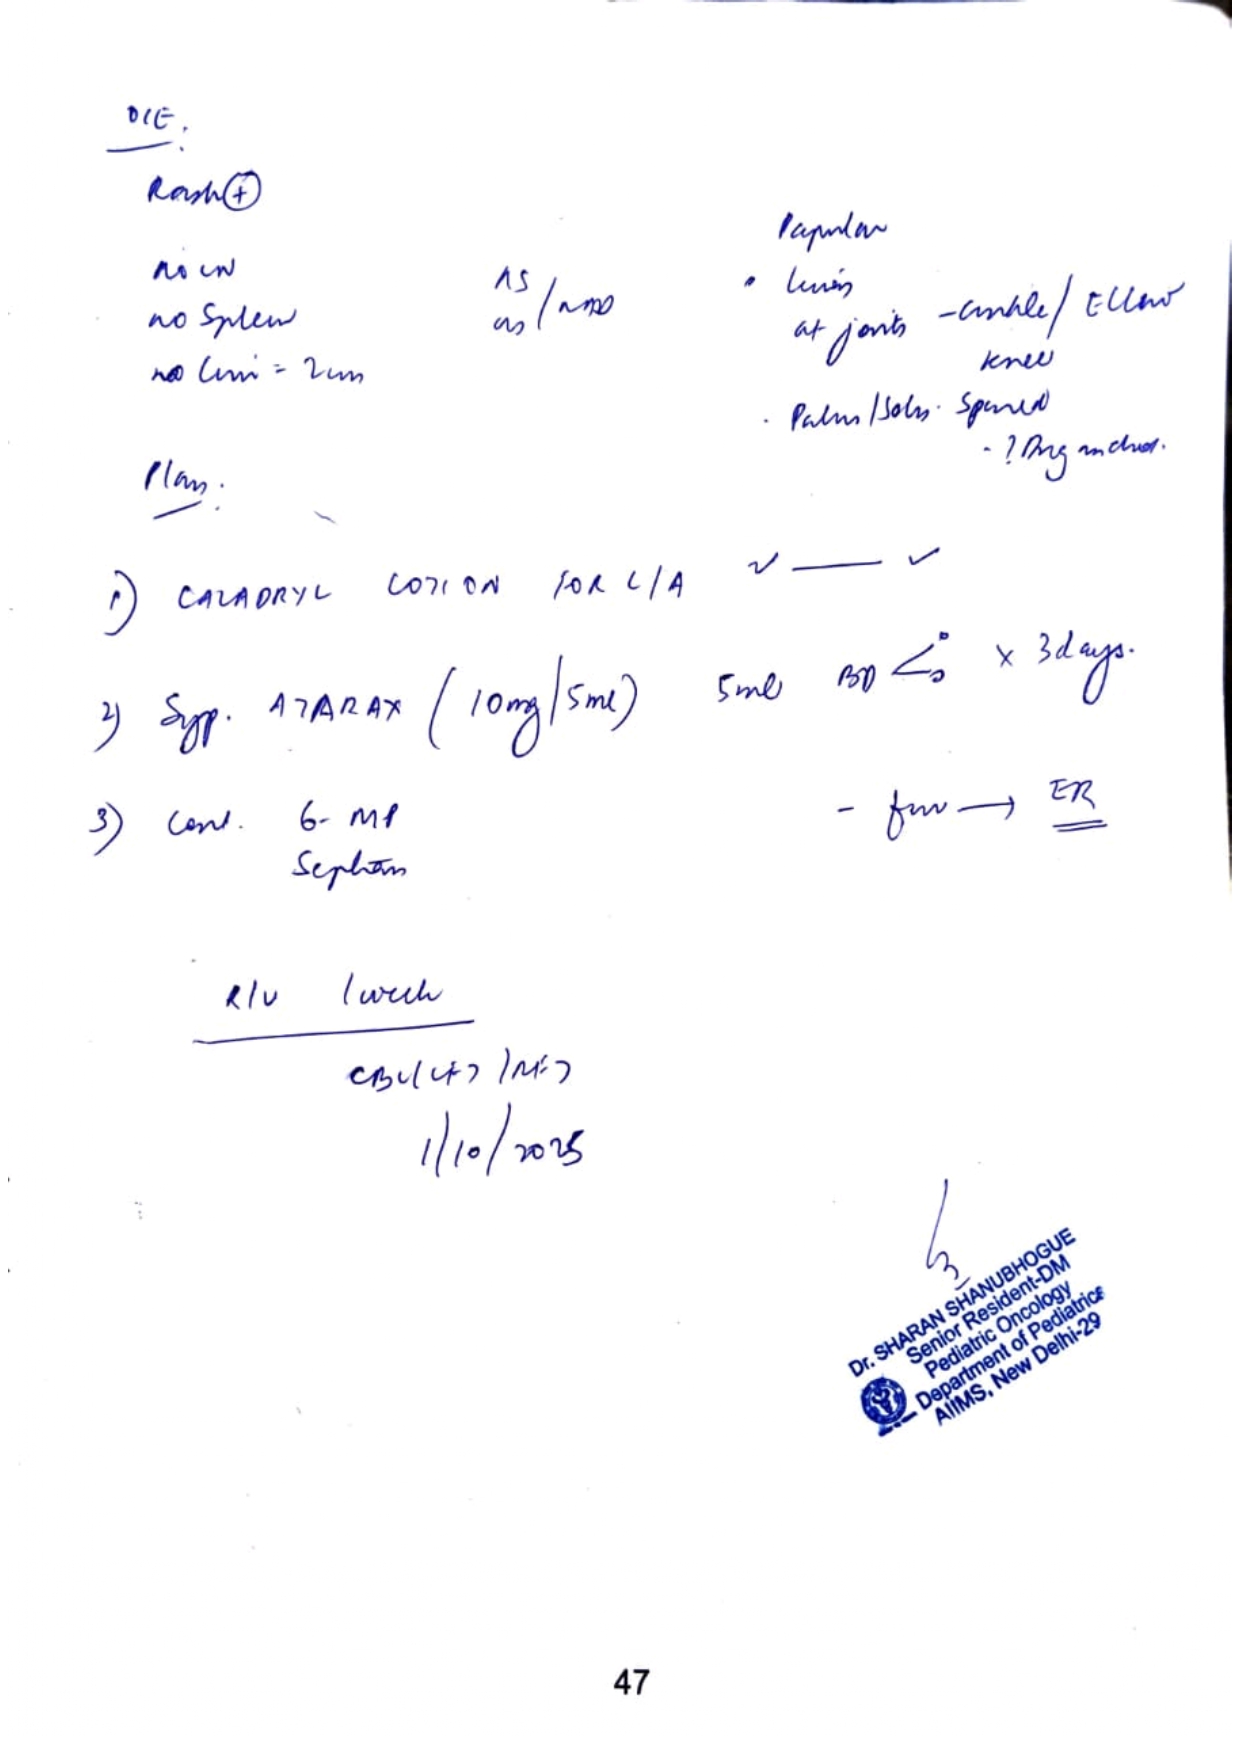 O/E.
Rash +
no LN
no Spleen
no Livi = 2cm
AS / NAD
Papular
• lesions
at joints - ankle / Elbow
knee
. Palms / Soles . Spared
- ? Drug induced.
Plan :
1) CALADRYL LOTION FOR L/A ✓ — ✓
2) Syp. ATARAX ( 10mg/5ml) 5ml BD x 3days.
3) Cont. 6- MP
Septran
- fever → ER
R/V 1 week
CBC / LFT / RFT
1/10/2025
Dr. SHARAN SHANUBHOGUE
Senior Resident-DM
Pediatric Oncology
Department of Pediatrics
AIIMS, New Delhi-29
47